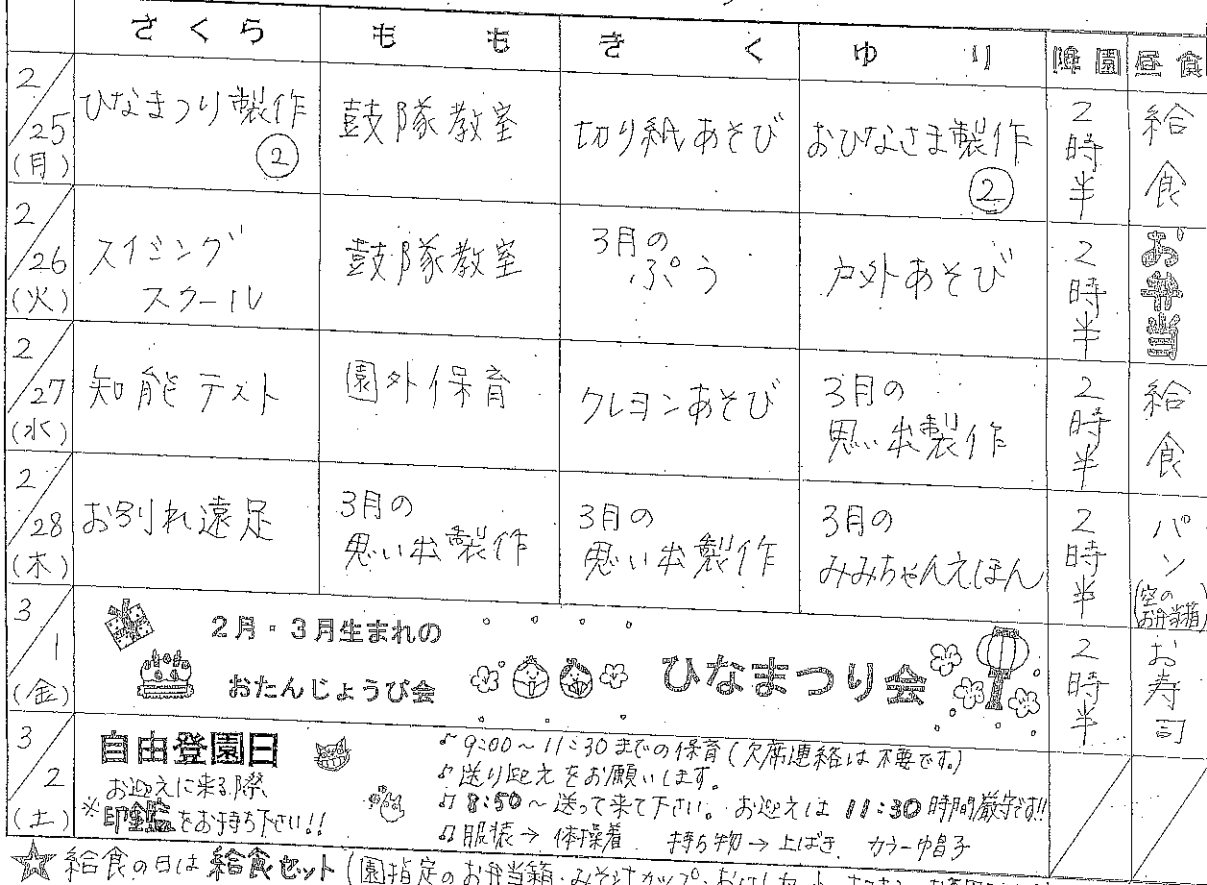 さくら もも きく ゆり 降園 昼食
2/25(月) ひなまつり製作② 鼓隊教室 切り紙あそび おひなさま製作② 2時半 給食
2/26(火) スイミングスクール 鼓隊教室 3月のぷう 戸外あそび 2時半 お弁当
2/27(水) 知能テスト 園外保育 クレヨンあそび 3月の思い出製作 2時半 給食
2/28(木) お別れ遠足 3月の思い出製作 3月の思い出製作 3月のみみちゃんえほん 2時半 パン(空のお弁当箱)
3/1(金) 2月・3月生まれのおたんじょうび会 ひなまつり会 2時半 お寿司
3/2(土) 自由登園日
お迎えに来る際
※印鑑をお持ち下さい!!
♪9:00〜11:30までの保育(欠席連絡は不要です。)
♪送り迎えをお願いします。
♪8:50〜送って来て下さい。お迎えは11:30時間厳守です!!
♫服装→体操着 持ち物→上ばき カラー帽子
☆給食の日は給食セット(園指定のお弁当箱・みそ汁カップ・おはし